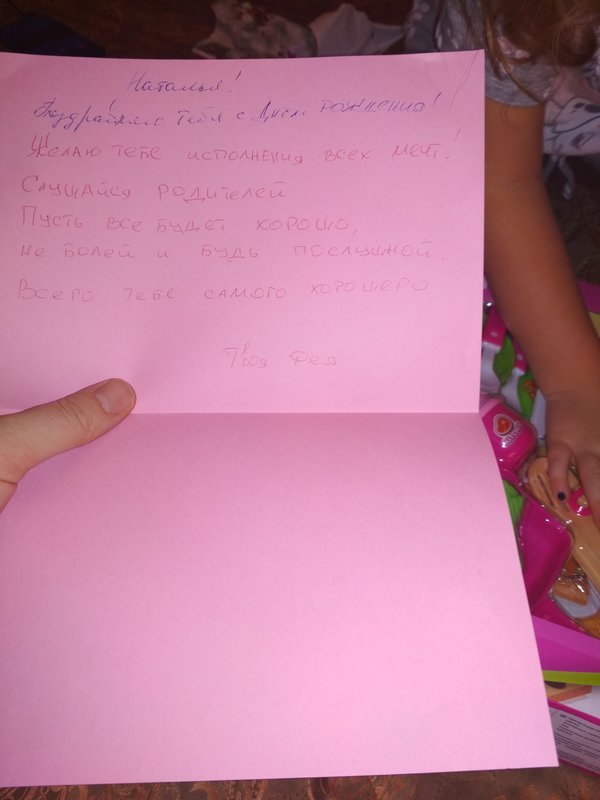 Наталья!
Поздравляю тебя с Днём рождения!
Желаю тебе исполнения всех мечт!
Слушайся родителей.
Пусть все будет хорошо,
не болей и будь послушной.
Всего тебе самого хорошего
Твоя Фея